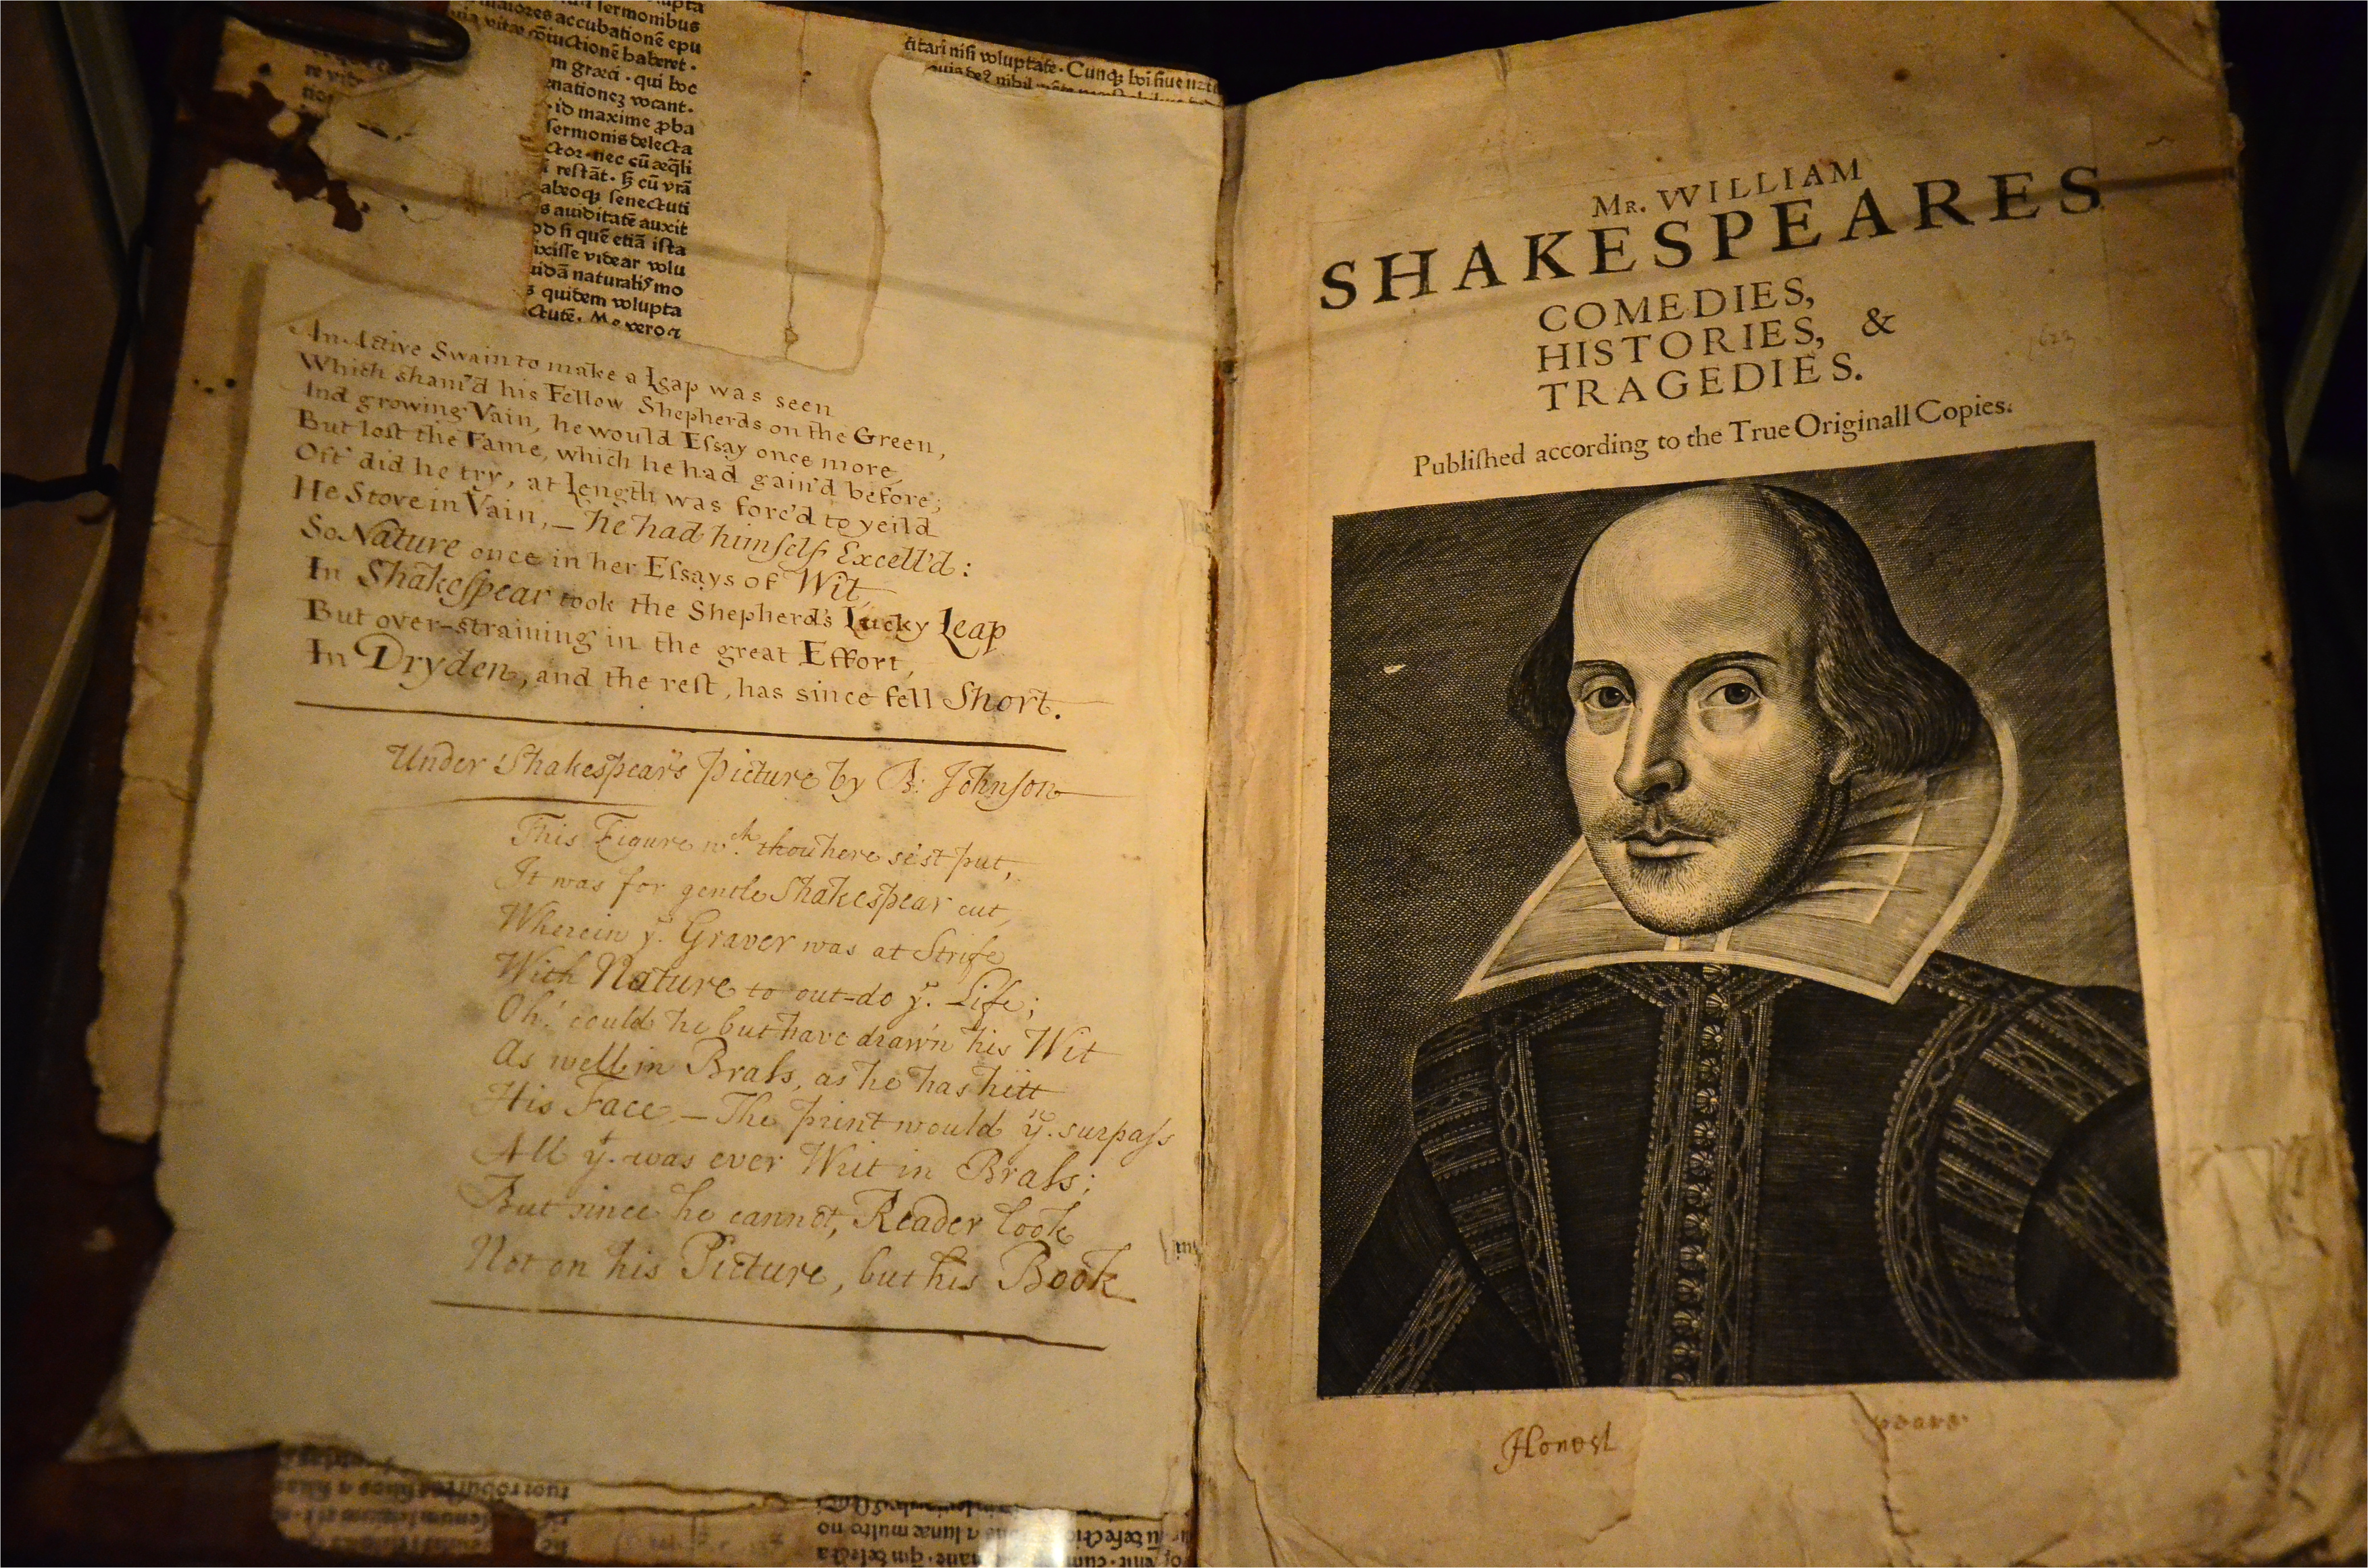 sermonibus
maiores accubationē epu
uia vitæ cōiuctionē haberet.
m græci. qui hoc
nationez vocant.
.id maxime ꝓba
sermonis delecta
ctor. nec cū æq̄li
i restāt. ꝫ cū vrā
abeoqꝫ senectuti
s auiditatē auxit
od si quē etiā ista
ixisse videar volu
uidā naturalis mo
ꝫ quidem volupta
ctutē. Me vero
citari nisi voluptate. Cunqꝫ hoi siue
nihil
An Active Swain to make a Leap was seen
Which sham'd his Fellow Shepherds on the Green,
And growing Vain, he would Eſsay once more
But lost the Fame, which he had gain'd before;
Oft' did he try, at Length was forc'd to yeild
He Stove in Vain, – he had himſelf Excell'd:
So Nature once in her Eſsays of Wit
In Shakeſpear took the Shepherd's Lucky Leap
But over-straining in the great Effort,
In Dryden, and the reſt, has since fell Short.
Under Shakespear's Picture by B: Johnſon
This Figure wch. thou here se'st put,
It was for gentle Shakespear cut,
Wherein ye. Graver was at Strife
With Nature to out-do ye. Life;
Oh! could he but have drawn his Wit
As well in Braſs, as he has hitt
His Face – The print would yn. surpaſs
All yt. was ever Writ in Braſs;
But since he cannot, Reader look
Not on his Picture, but his Book
multo no
Mr. WILLIAM
SHAKESPEARES
COMEDIES,
HISTORIES, &
TRAGEDIES.
1623
Publiſhed according to the True Originall Copies.
Honest
peare